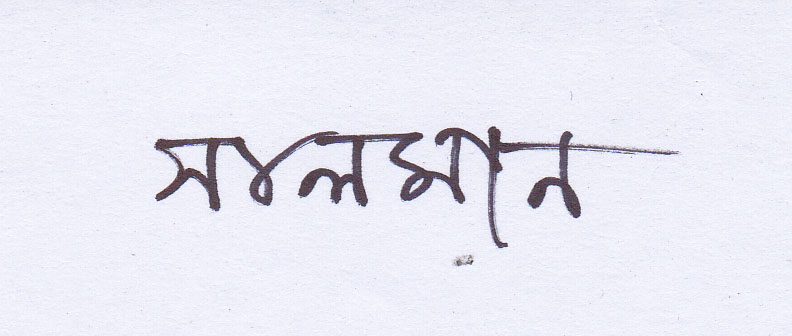 সালমান